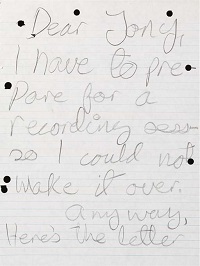 Dear Tony,
I have to pre-
pare for a
recording sess-
so I could not
make it over.
Anyway,
Here's the letter